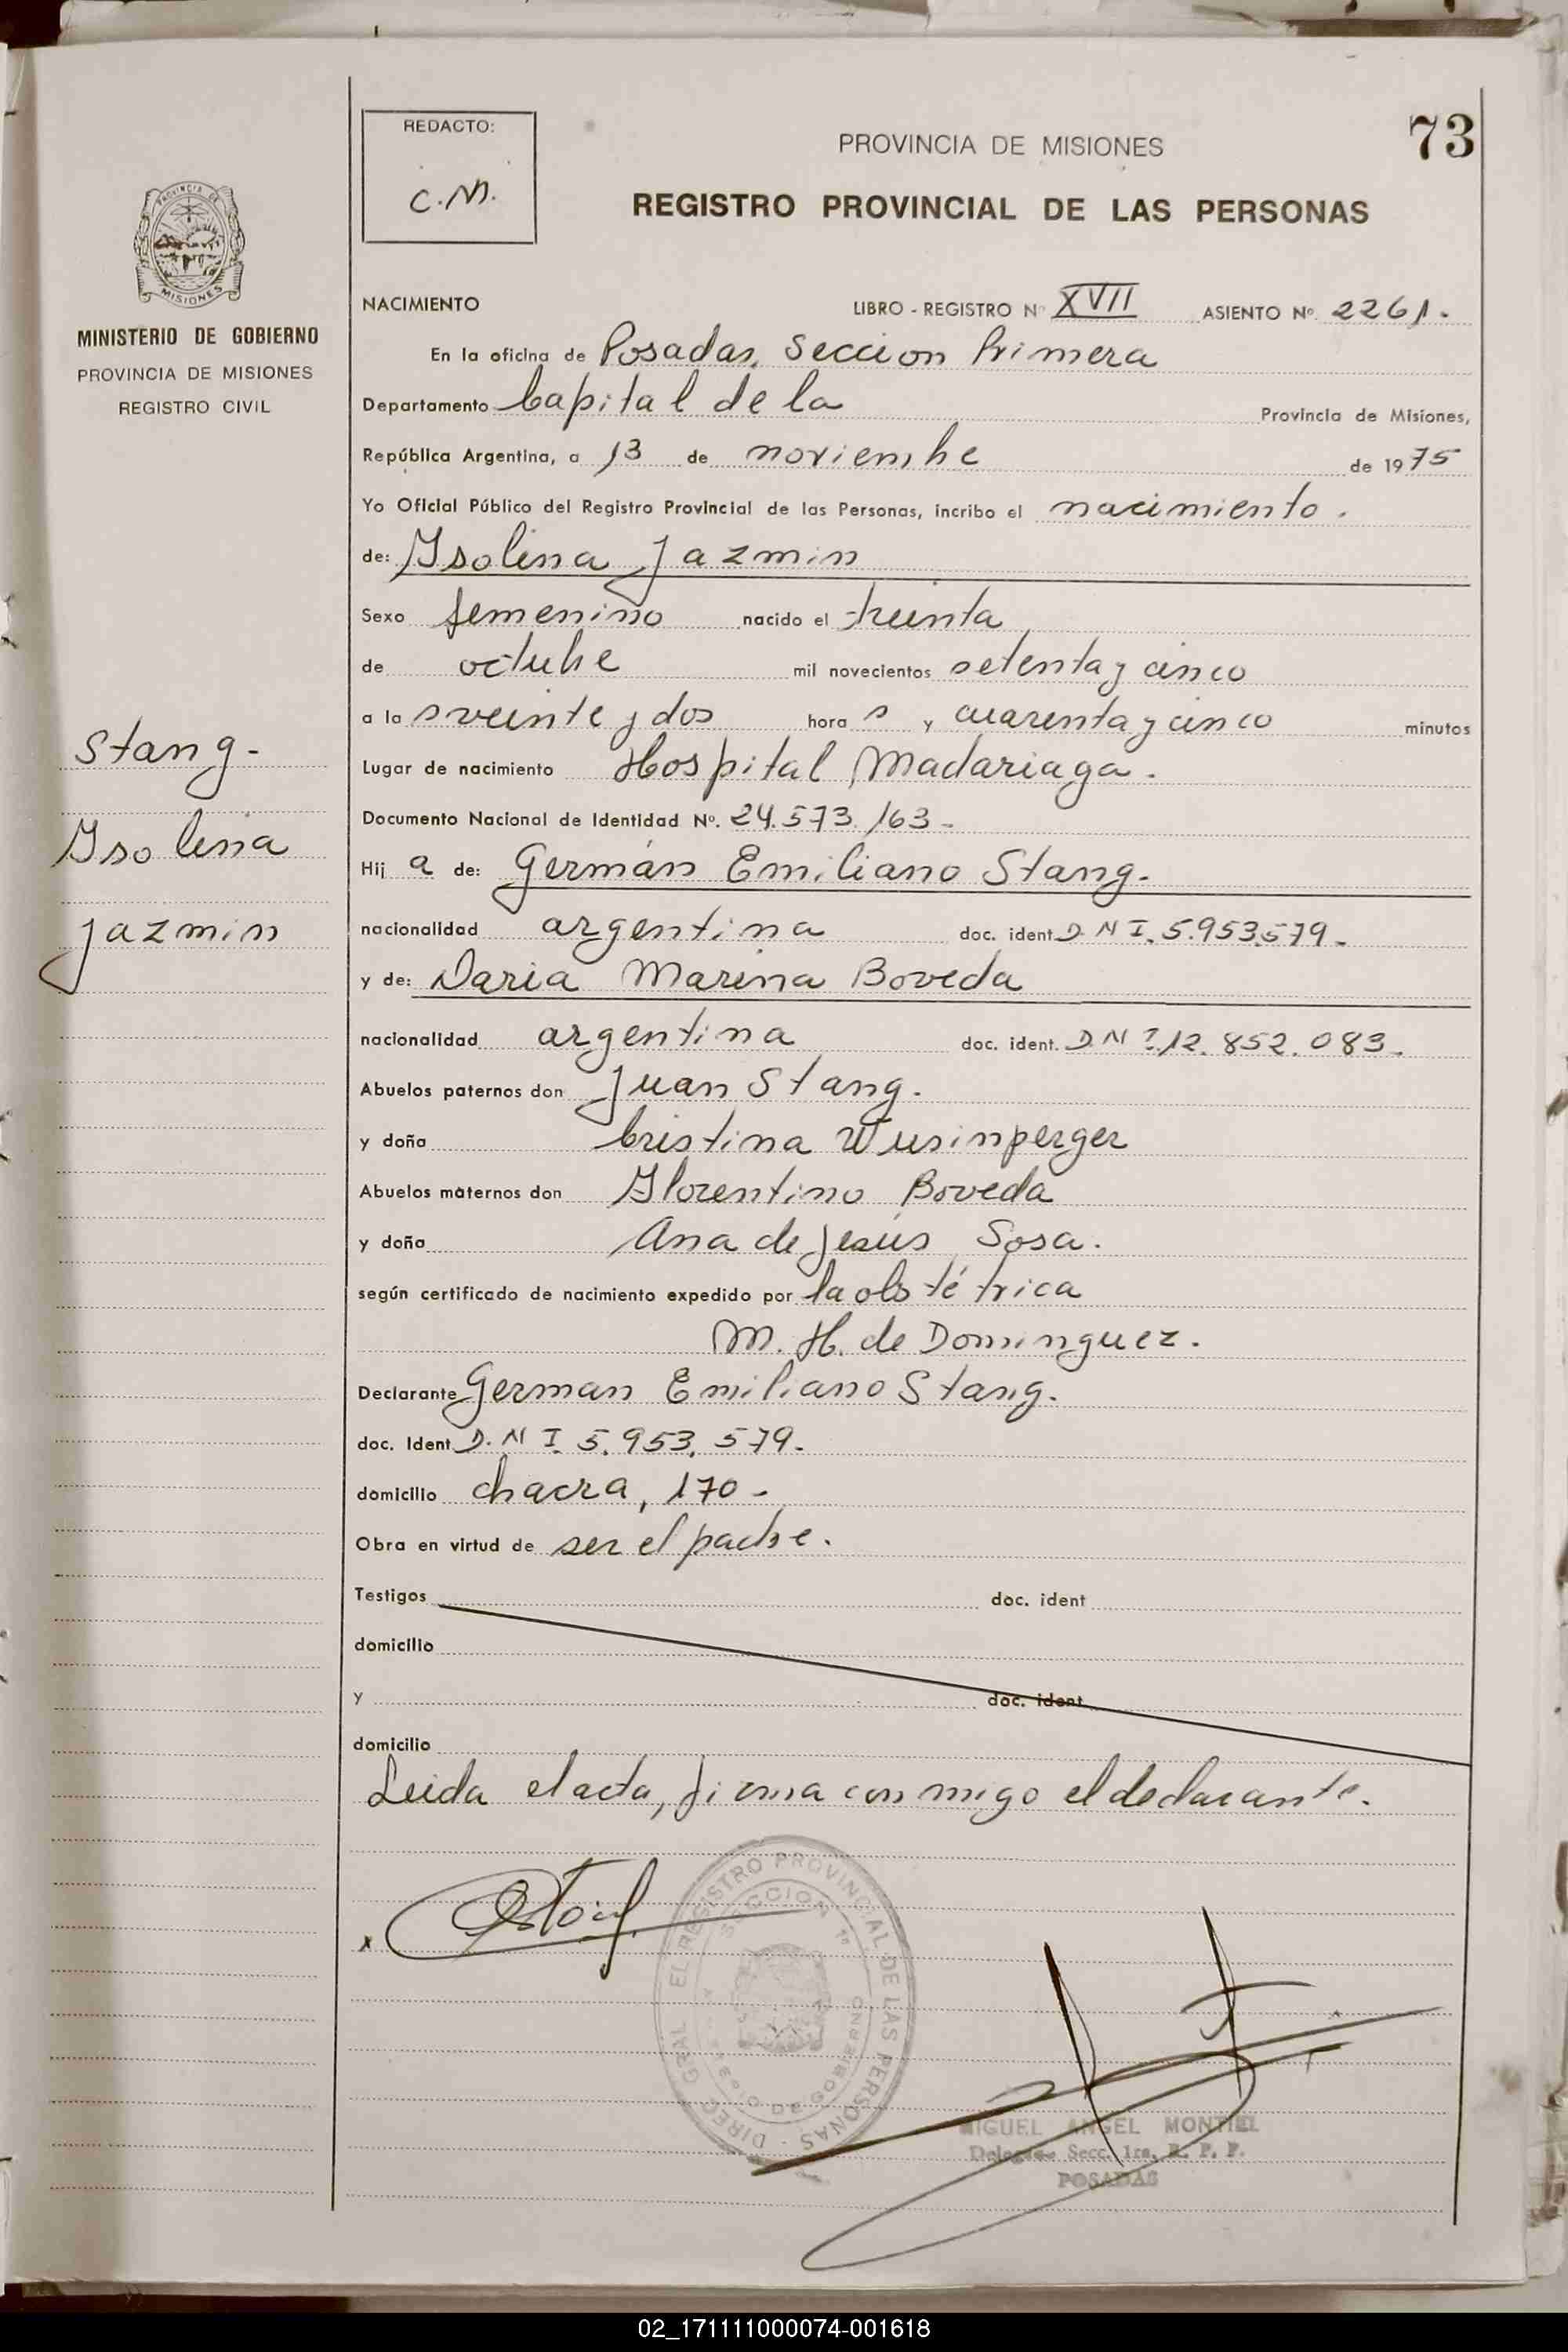 73
REDACTO:
C.M.
PROVINCIA DE MISIONES
REGISTRO PROVINCIAL DE LAS PERSONAS
PROVINCIA DE
MISIONES
MINISTERIO DE GOBIERNO
PROVINCIA DE MISIONES
REGISTRO CIVIL
Stang.-
Isolina
Jazmin
NACIMIENTO LIBRO - REGISTRO Nº XVII ASIENTO Nº 2261.
En la oficina de Posadas, Seccion Primera
Departamento Capital de la Provincia de Misiones,
República Argentina, a 13 de noviembre de 1975
Yo Oficial Público del Registro Provincial de las Personas, incribo el nacimiento.
de: Isolina Jazmin
Sexo femenino nacido el treinta
de octubre mil novecientos setenta y cinco
a la s veinte y dos hora s y cuarenta y cinco minutos
Lugar de nacimiento Hospital Madariaga.
Documento Nacional de Identidad Nº. 24.573.163-
Hij a de: Germán Emiliano Stang.
nacionalidad argentina doc. ident. D.N.I. 5.953.579.-
y de: Daria Marina Boveda
nacionalidad argentina doc. ident. D.N.I. 12.852.083.
Abuelos paternos don Juan Stang.
y doña Cristina Wusinperger
Abuelos maternos don Florentino Boveda
y doña Ana de Jesús Sosa.
según certificado de nacimiento expedido por la obstétrica
M. H. de Dominguez.
Declarante German Emiliano Stang.
doc. Ident D.N.I. 5.953.579.
domicilio chacra, 170-
Obra en virtud de ser el padre.
Testigos doc. ident
domicilio
y doc. ident
domicilio
Leida el acta, firma conmigo el declarante.
x
DIREC. GRAL EL REGISTRO PROVINCIAL DE LAS PERSONAS
SECCION 1ª
DE GOBIERNO
MIGUEL ANGEL MONTIEL
Delegado Secc. 1ra. R. P. P.
POSADAS
02_171111000074-001618